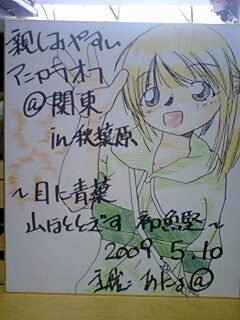 親しみやすい
アニカラオフ
@関東
in秋葉原
~目に青葉
山ほととぎす 初魚堅~
2009.5.10
主催: